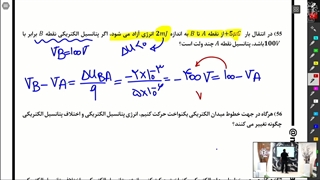 55) در انتقال بار +5μC از نقطه A تا B به اندازه 2mj انرژی آزاد می شود. اگر پتانسیل الکتریکی نقطه B برابر با
100V باشد، پتانسیل نقطه A چند ولت است؟
V_B=100V ΔU<0
V_B - V_A = ΔU_BA / q = -2×10^-3 / 5×10^-6 = -400V = 100 - V_A
56) هرگاه در جهت خطوط میدان الکتریکی یکنواخت حرکت کنیم، انرژی پتانسیل الکتریکی و اختلاف پتانسیل الکتریکی
چگونه تغییر می کنند؟